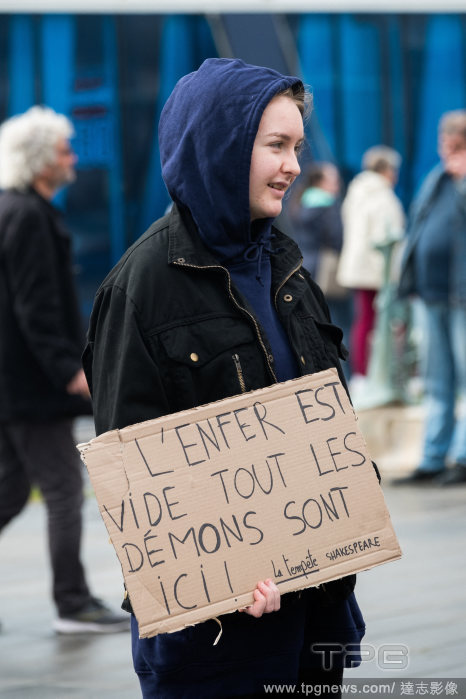 L'ENFER EST
VIDE TOUT LES
DÉMONS SONT
ICI!
La tempête SHAKESPEARE
TPG
www.tpgnews.com/達志影像